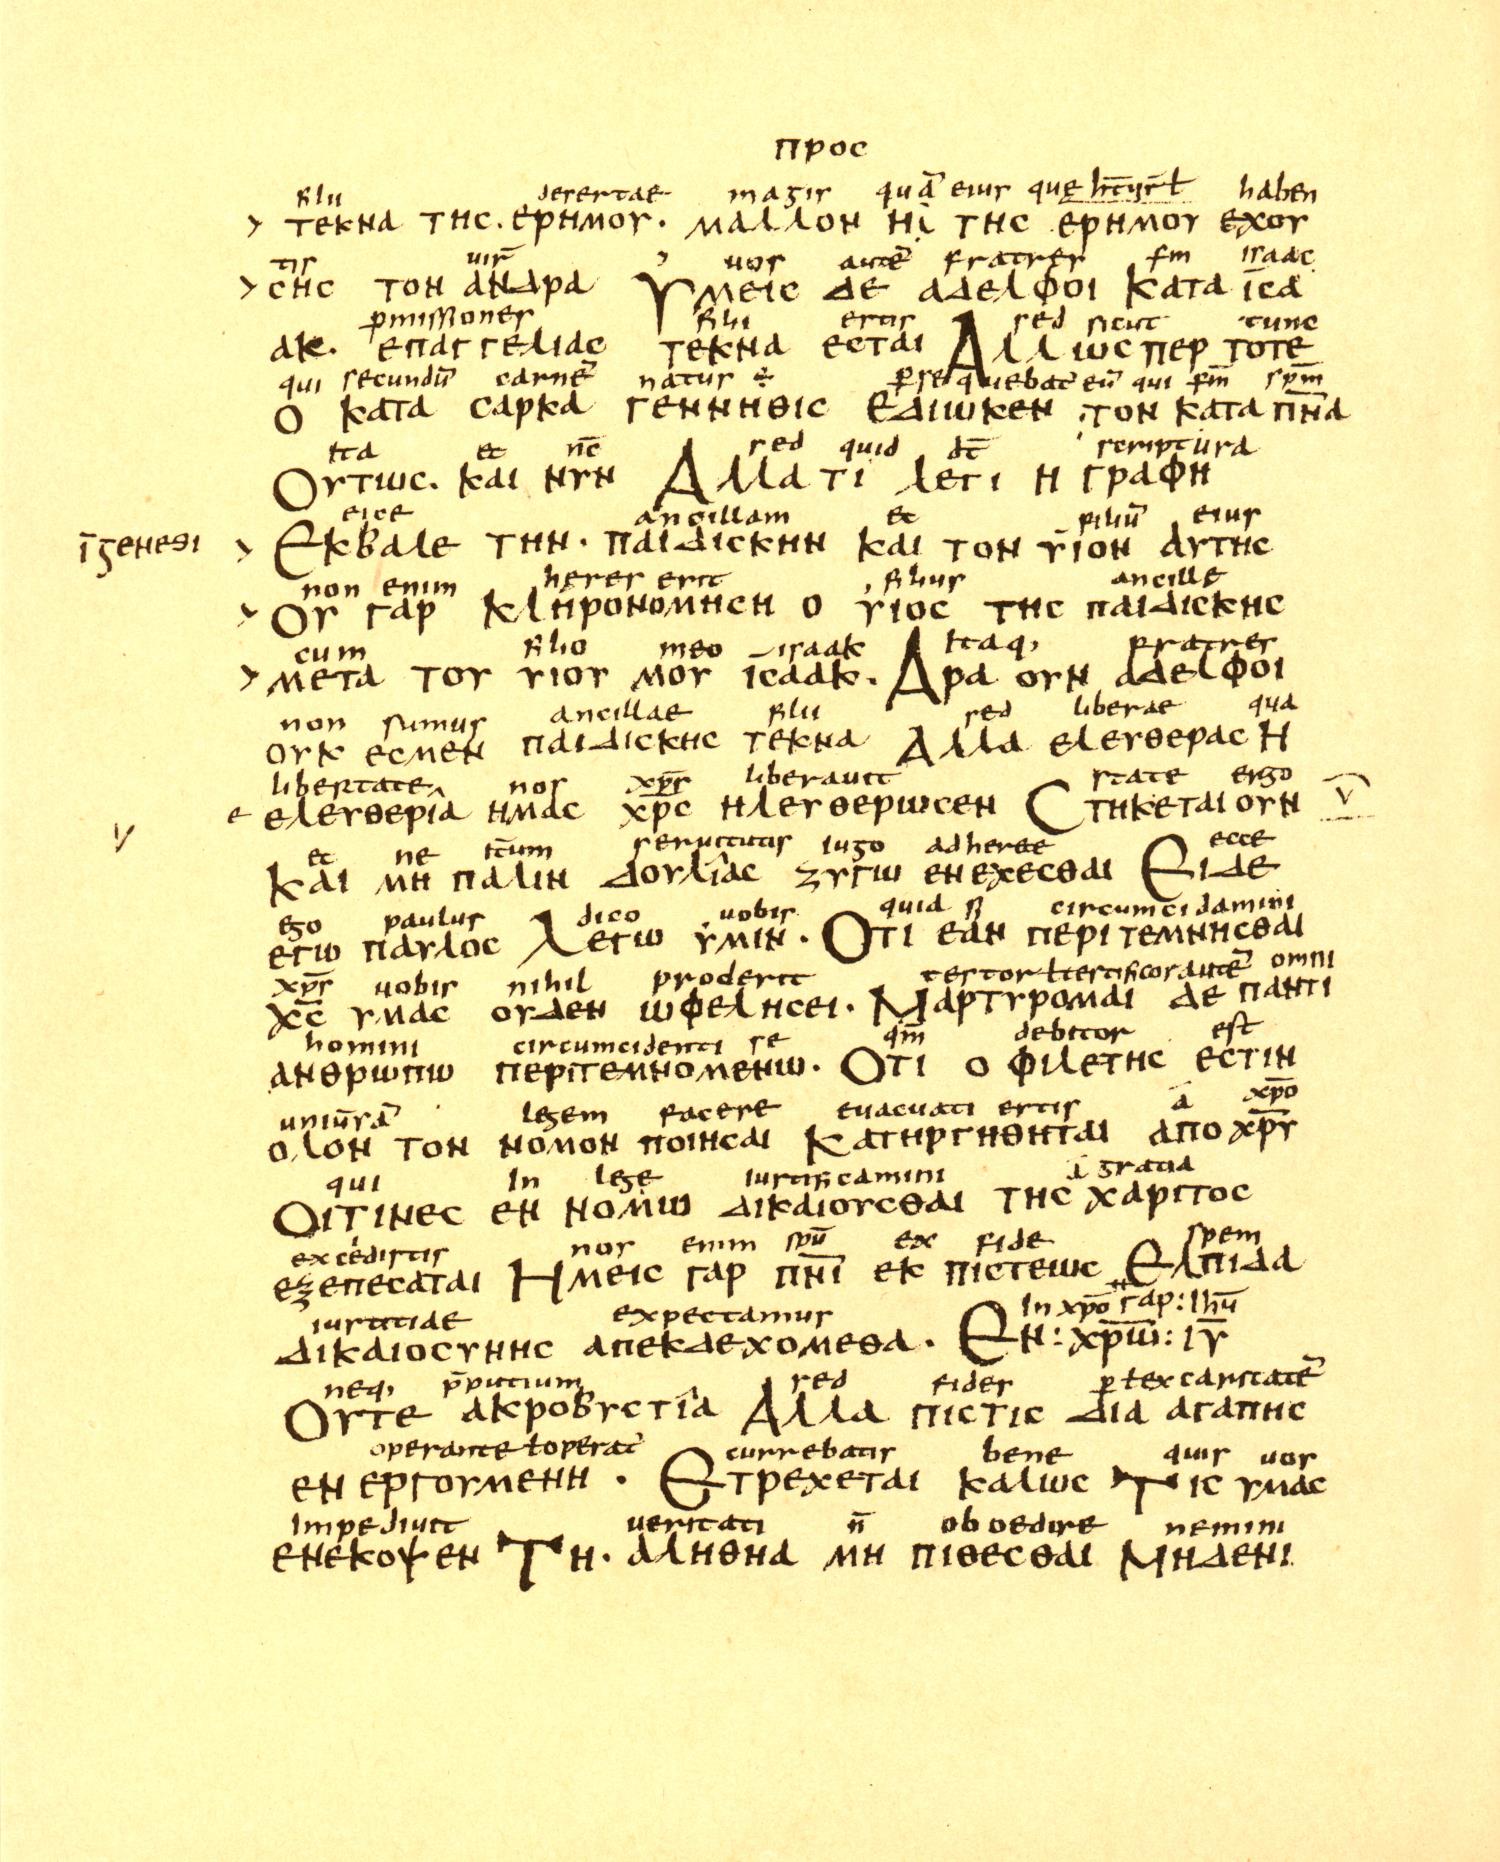 προς
filii desertae magis quā eius quę hr̄ ugr̄ ł haben
> τεκνα της . ερημου . μαλλον ηι της ερημου εχου
tis uir̄ uos autē fratres s̄m isaac
> σης τον ανδρα Υμεις δε αδελφοι κατα ισα
p̄missiones filii estis sed sicut tunc
ακ . επαγγελιας τεκνα εσται Αλλ ωσπερ τοτε
qui secundū carnē natus ē persequebat̄ eū qui s̄m sp̄m
ο κατα σαρκα γεννηθις εδιωκεν τον κατα π̄ν̄α
ita et nc̄ sed quid dc̄ scriptura
Ουτως . και νυν Αλλα τι λεγι η γραφη
eice ancillam et filiū eius
ῑ γενεθι > Εκβαλε την . παιδισκην και τον υιον αυτης
non enim heres erit filius ancille
> Ου γαρ κληρονομηση ο υιος της παιδισκης
cum filio meo isaak itaq; fratres
> μετα του υιου μου ισαακ . Αρα ουν αδελφοι
non sumus ancillae filii sed liberae qua
ουκ εσμεν παιδισκης τεκνα Αλλα ελευθερας Η
libertate nos xp̄s liberauit state ergo
ε ελευθερια ημας χ̄ρ̄ς ηλευθερωσεν Στηκεται ουν V̄
et ne itēum seruitutis iugo adherēe ecce
V Και μη παλιν δουλιας ζυγω ενεχεσθαι Ειδε
ego paulus dico uobis quid si circumcidamini
εγω παυλος Λεγω υμιν . Οτι εαν περιτεμνησθαι
xp̄s uobis nihil proderit testor ł testificor autē omni
χ̄ς̄ υμας ουδεν ωφελησει . Μαρτυρομαι δε παντι
homini circumcidenti se qm̄ debitor est
ανθρωπω περιτεμνομενω . Οτι οφιλετης εστιν
uniūsā legem facere euacuati estis a xp̄o
ολον τον νομον ποιησαι Κατηργηθηται απο χ̄ρ̄υ
qui in lege iustificamini a gratia
Οιτινες εν νομω δικαιουσθαι της χαριτος
excedistis nos enim sp̄u ex fide spem
εξεπεσαται Ημεις γαρ π̄ν̄ι εκ πιστεως Ελπιδα
iustitiae expectamus in xp̄o γαρ : ihū
δικαιοσυνης απεκδεχομεθα . Εν : χ̄ρ̄ω : ῑῡ
neq; p̄putium sed fides p̄ ł ex caritatē
Ουτε ακροβυστια Αλλα πιστις δια αγαπης
operante ł operat̄ currebatis bene quis uos
εν εργουμενη . Ετρεχεται καλως Τις υμας
impediuit ueritati n̄ oboedire nemini
ενεκοψεν Τη . αληθηα μη πιθεσθαι Μηδενι